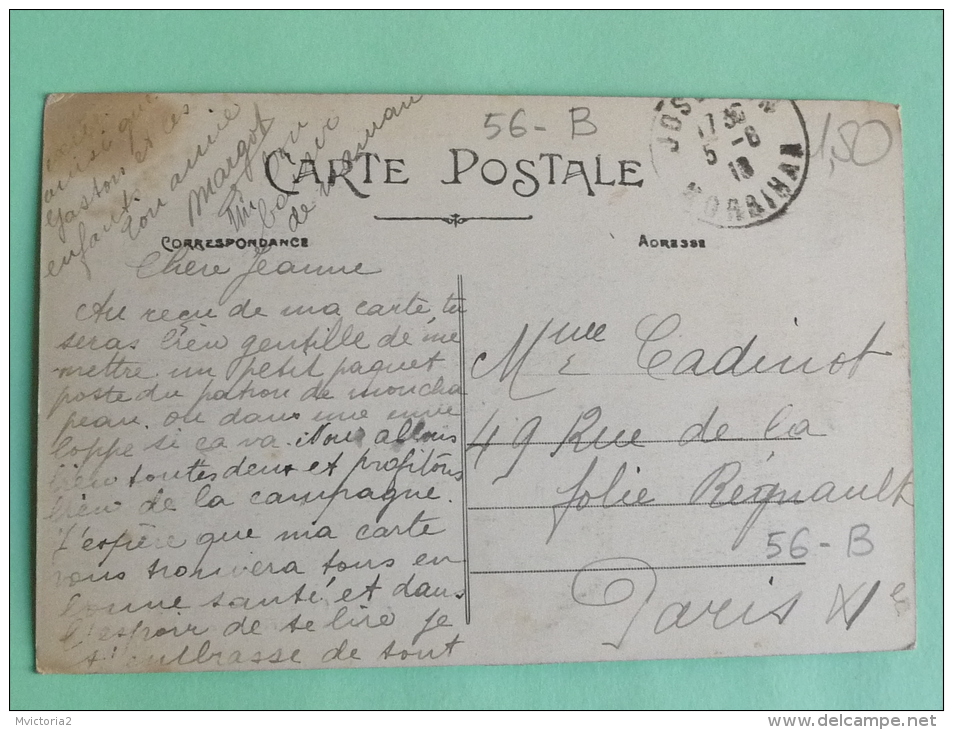 56 - B
1,80
CARTE POSTALE
17 30
5 - 8
18
MORBIHAN
CORRESPONDANCE
ADRESSE
Chère Jeanne
Au reçu de ma carte, tu
seras bien gentille de me
mettre un petit paquet
poste du patron de mon cha
peau ou dans une enve
loppe si ça va. Nous allons
bien toutes deux et profitons
bien de la campagne.
J'espère que ma carte
vous trouvera tous en
bonne santé et dans
l'espoir de te lire je
t'embrasse de tout
ainsi que
Gaston et les
enfants
Ton amie
Margot
Un
de maman
Mme Cadinot
49 Rue de la
folie Regnault
56 - B
Paris XIe
Mvictoria2
www.delcampe.net